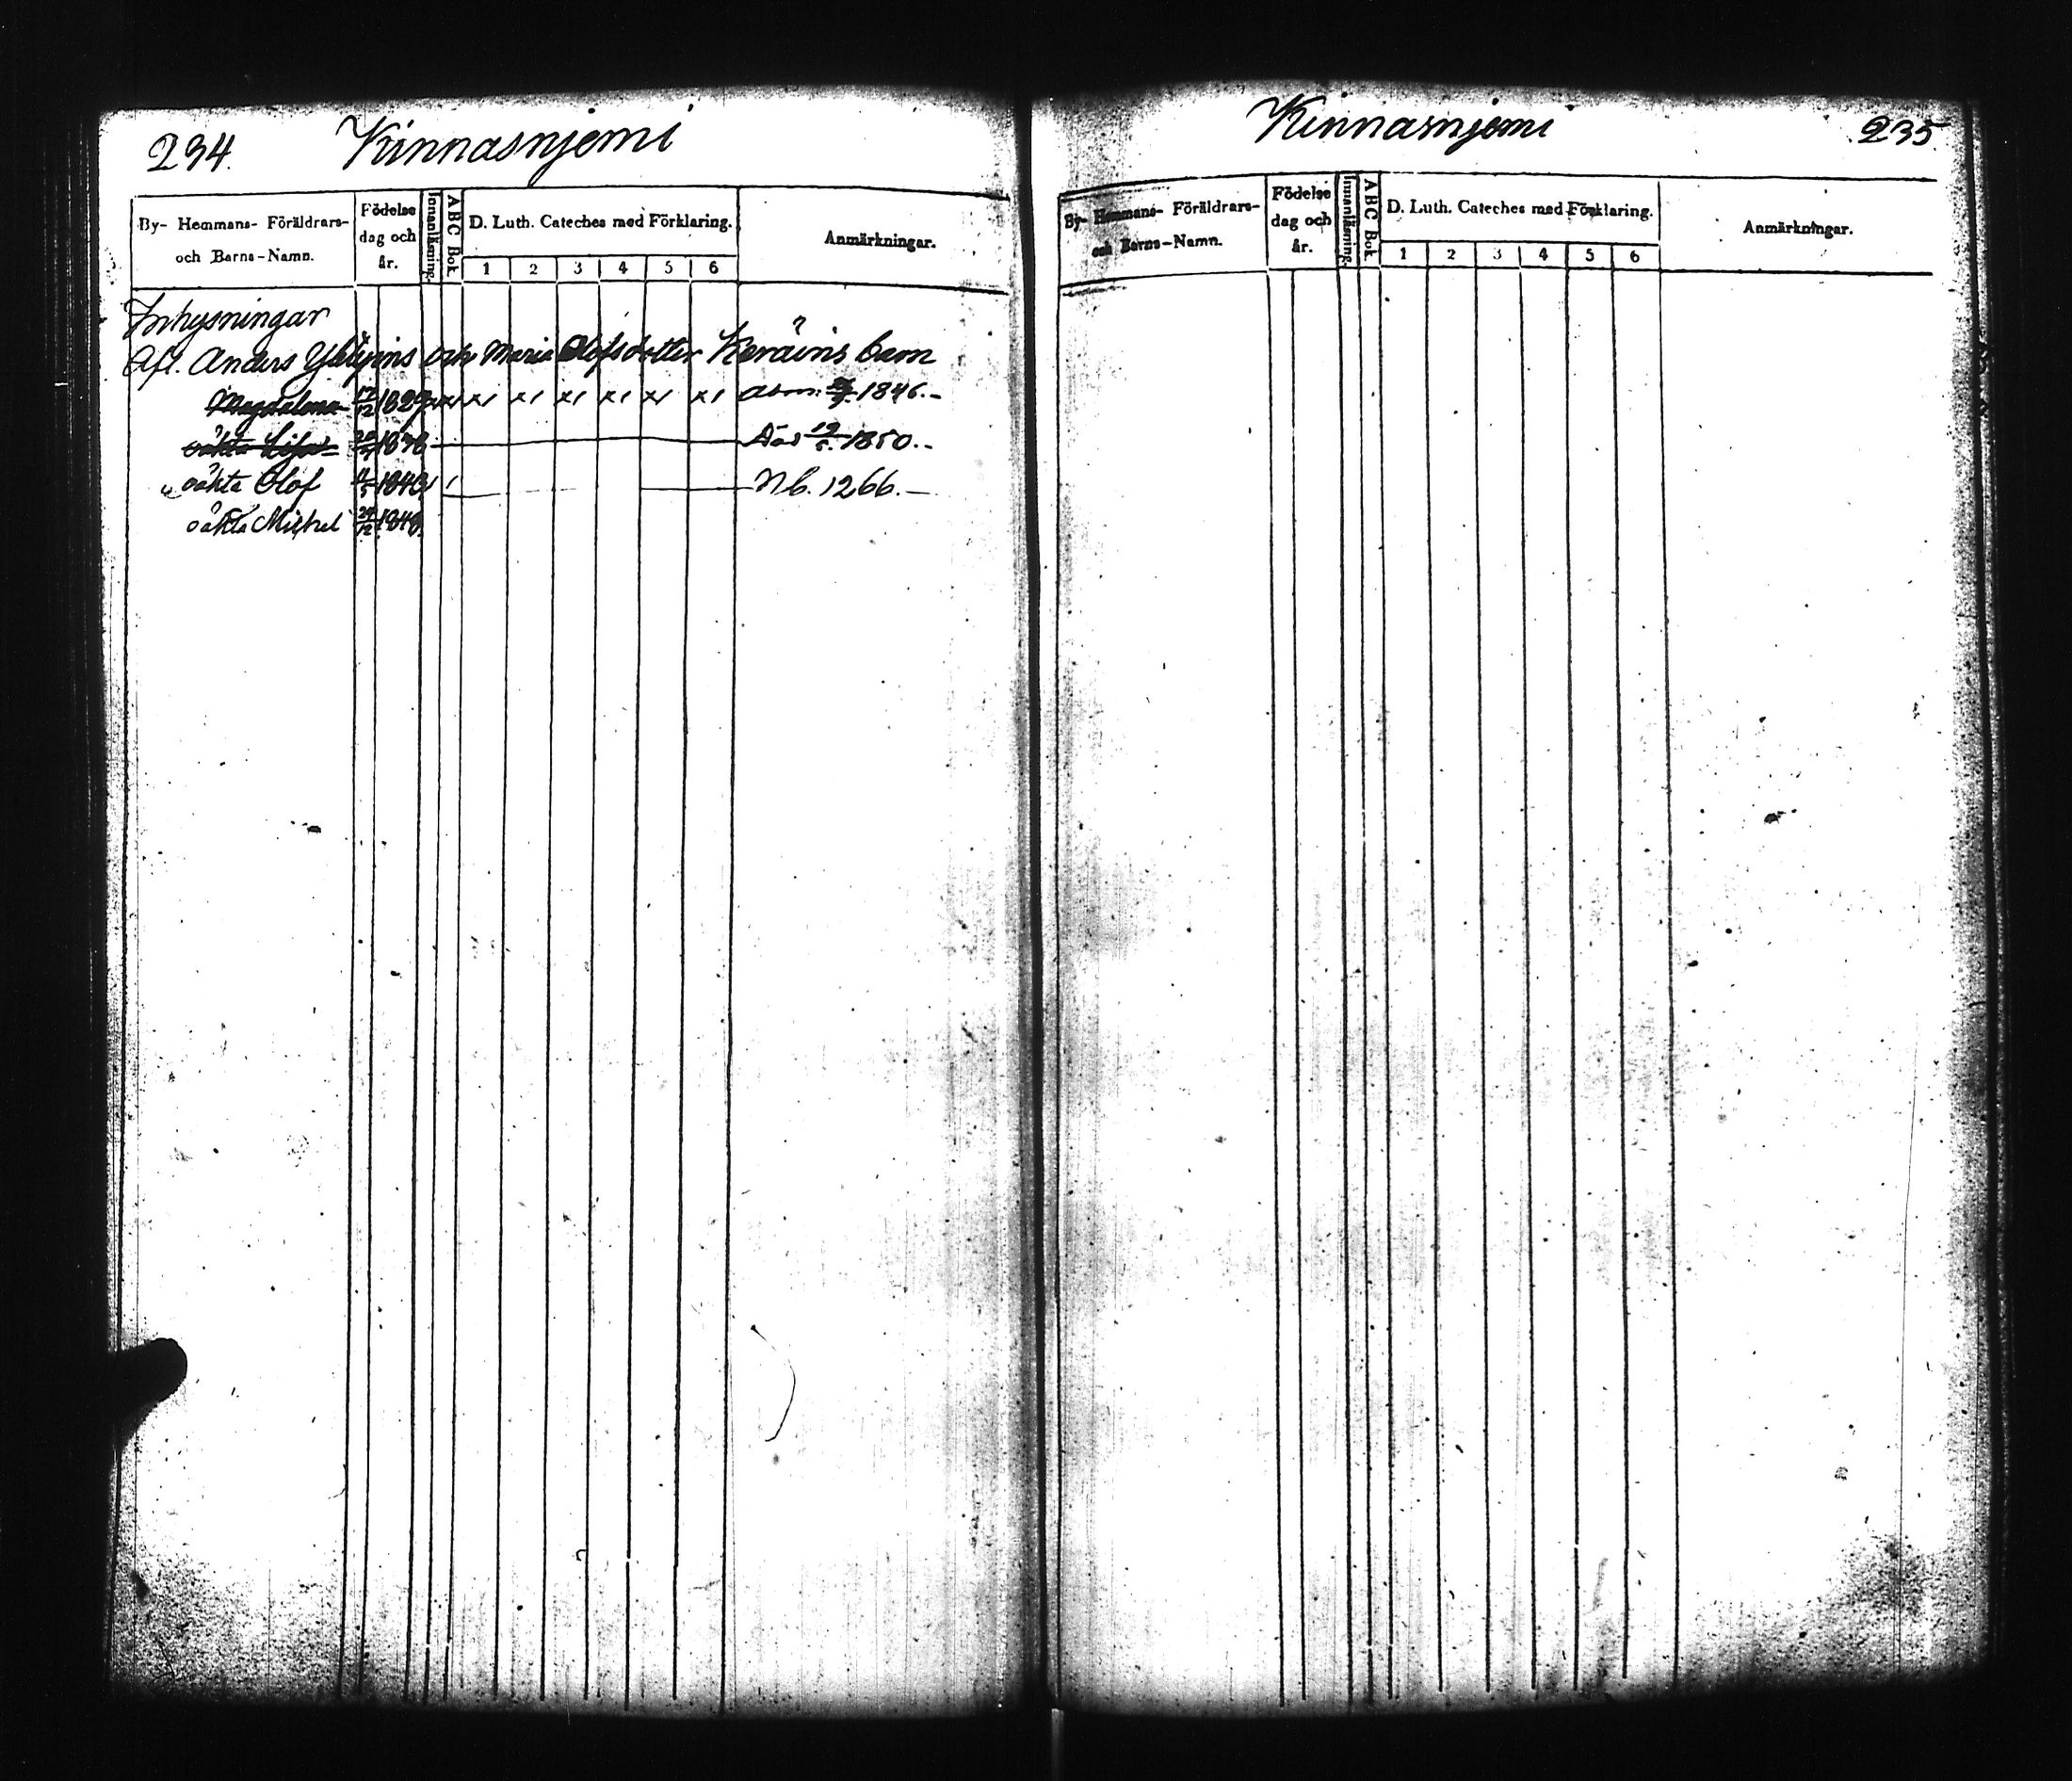 234. Kinnasnjemi
By- Hemmans- Föräldrars- och Barns-Namn. Födelse dag och år. Innanläsning. ABC Bok. D. Luth. Cateches med Förklaring. Anmärkningar.
1 2 3 4 5 6
Inhysningar
Afl. Anders och Maria Olofsdotter Keräins barn
Magdalena 17/12 1827 x1 x1 x1 x1 x1 x1 1846.-
oäkta Lisa Död 19/5. 1850.-
oäkta Olof 1843 Nb. 1266.-
oäkta Michel 29/12 1848.
Kinnasnjemi 235.
By- Hemmans- Föräldrars- och Barns-Namn. Födelse dag och år. Innanläsning. ABC Bok. D. Luth. Cateches med Förklaring. Anmärkningar.
1 2 3 4 5 6